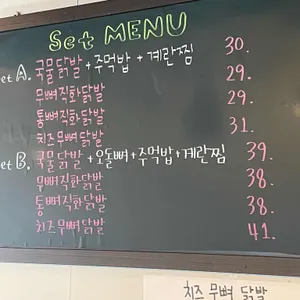 Set MENU
et A. 국물닭발 + 주먹밥 + 계란찜 30.
무뼈직화닭발 29.
통뼈직화닭발 29.
치즈무뼈닭발 31.
et B. 국물닭발 + 오돌뼈 + 주먹밥 + 계란찜 39.
무뼈직화닭발 38.
통뼈직화닭발 38.
치즈무뼈닭발 41.
치즈 무뼈 닭발